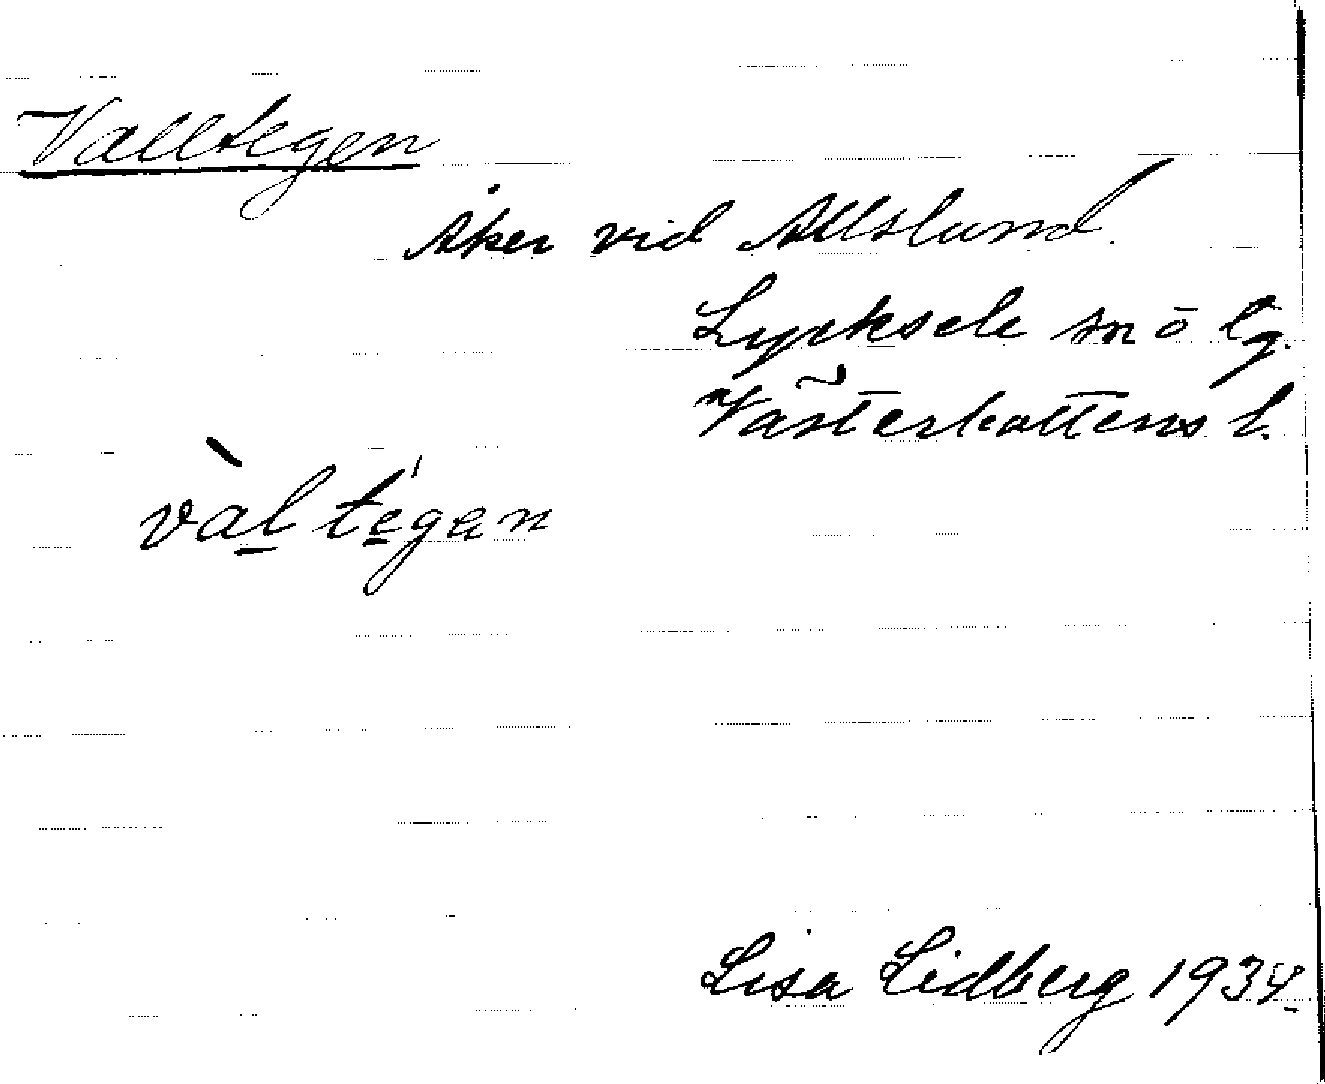 Valltegen
Åker vid Allslund.
Lycksele sn o lg.
Västerbottens l.
vàl tegen
Lisa Lidberg 1934